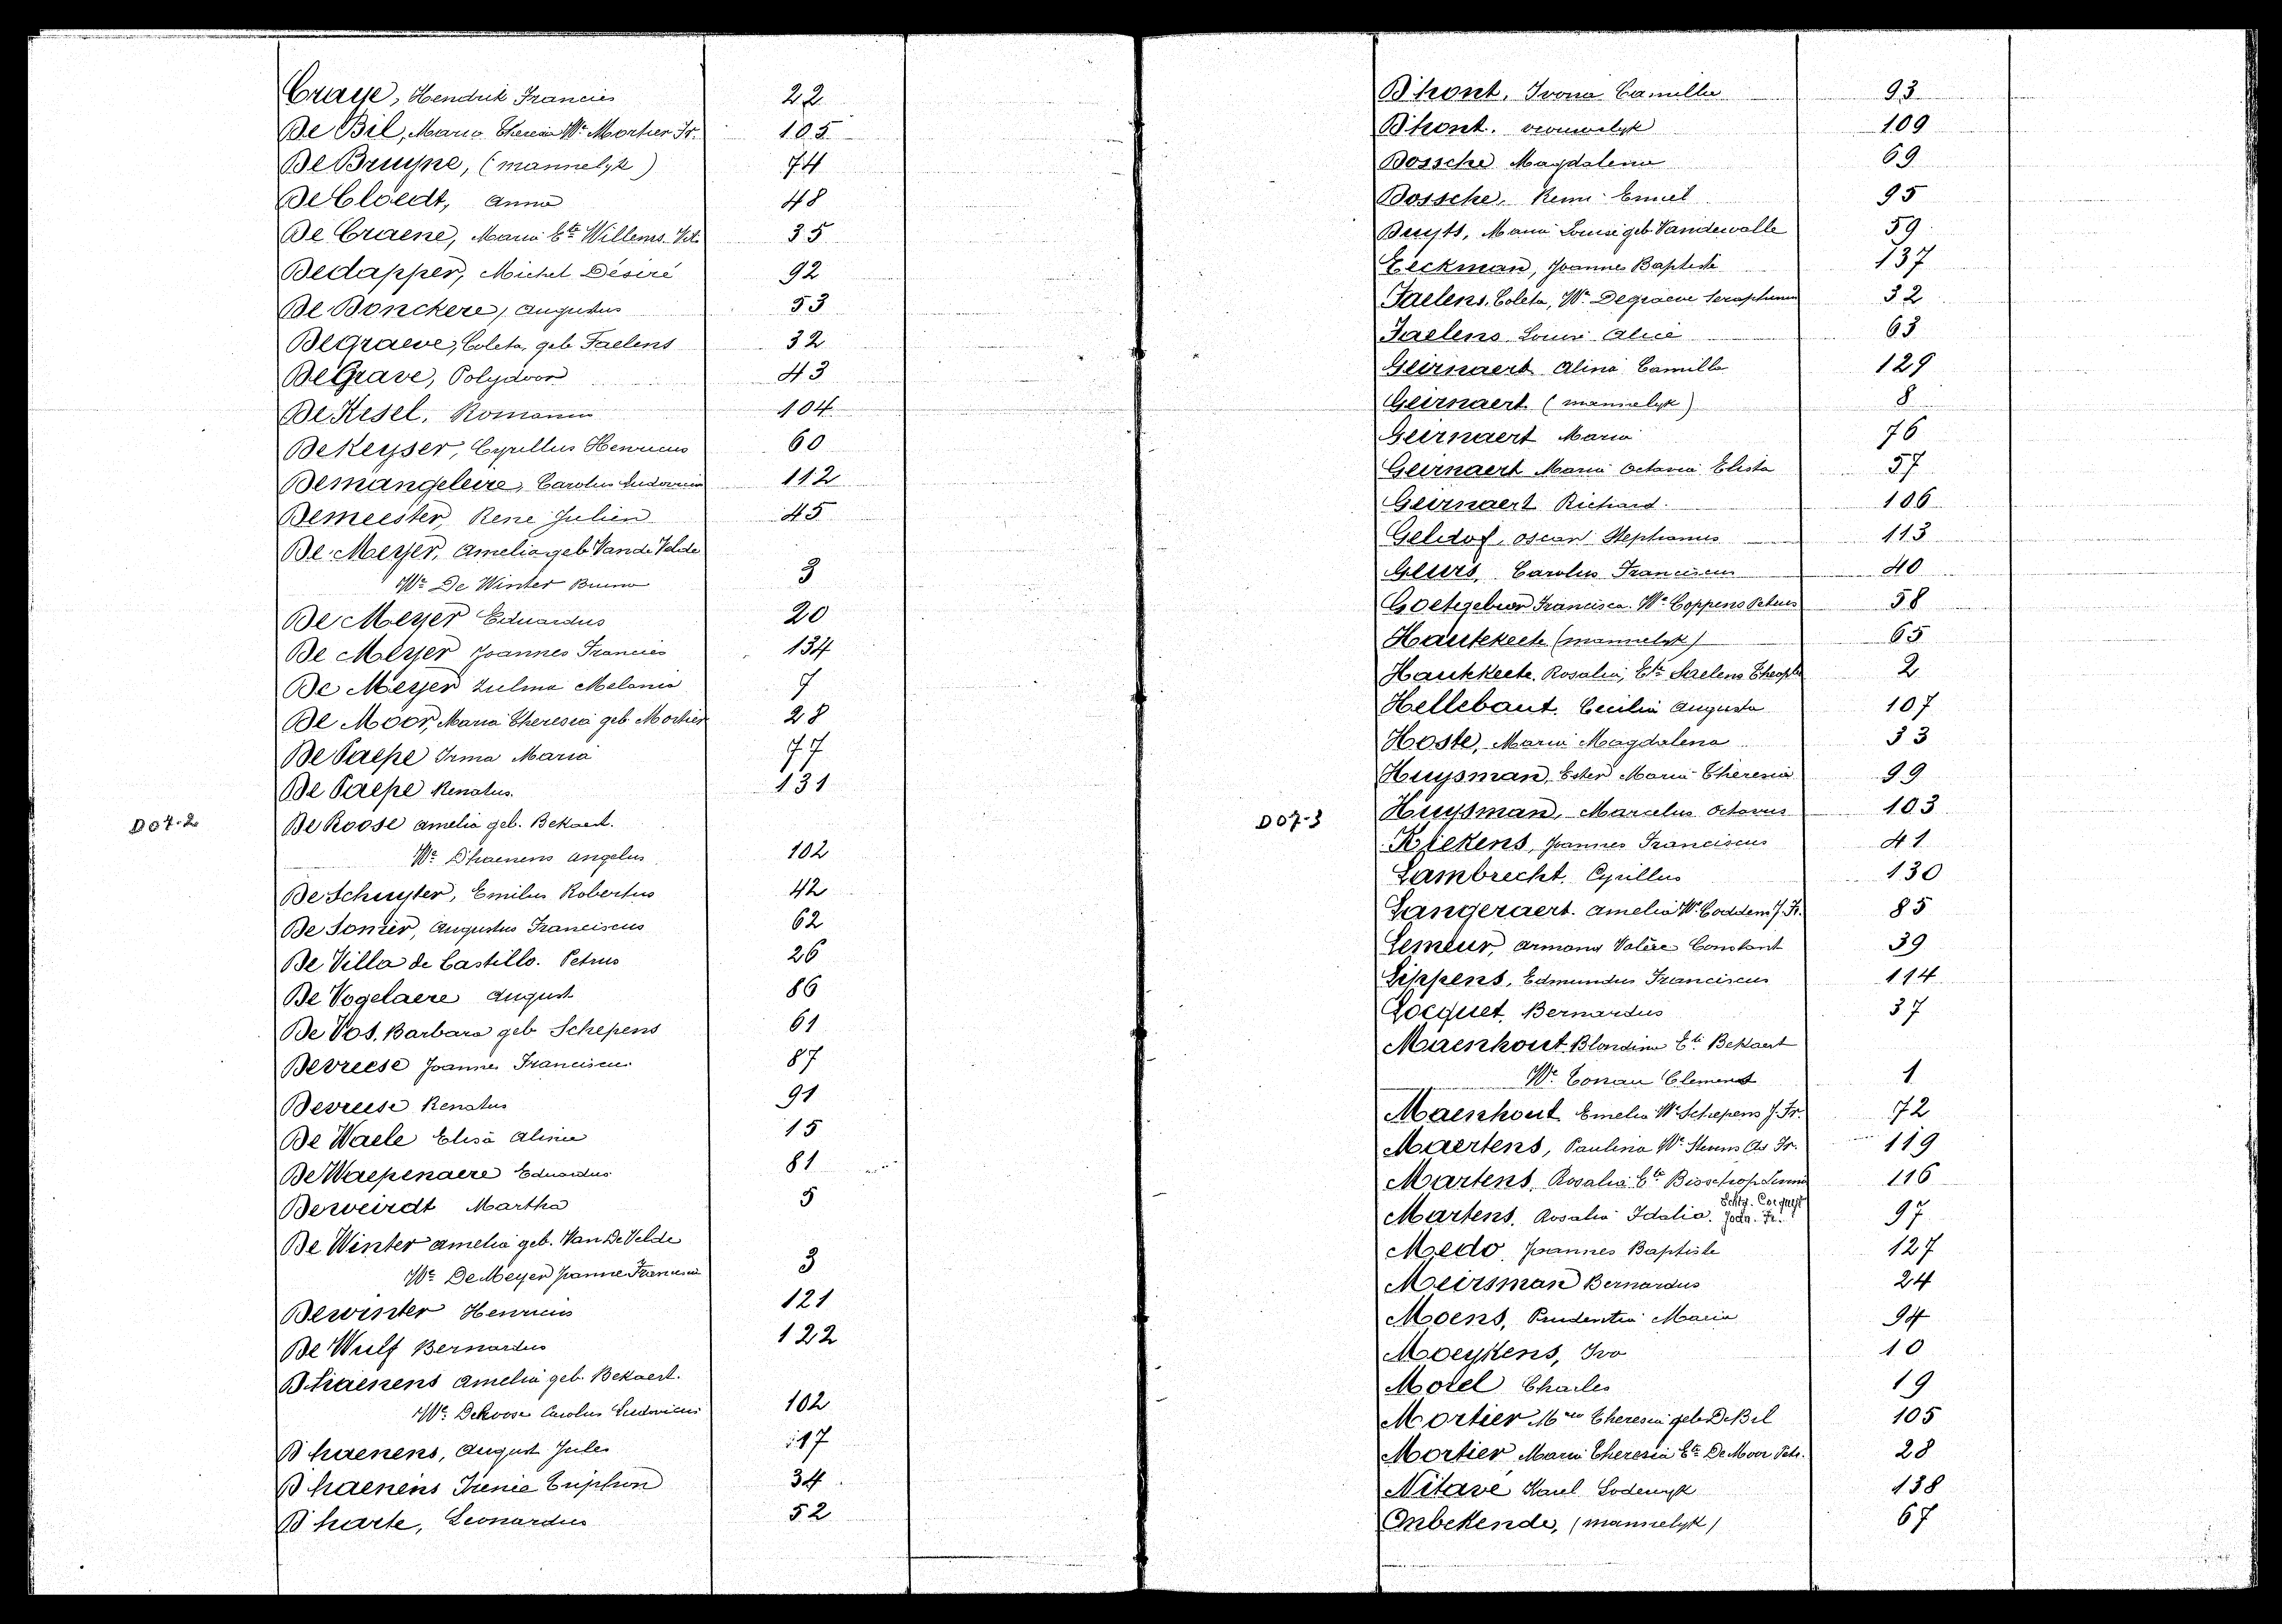 Craye, Hendrik Francies 22
De Bil, Maria Theresia We Mortier Fr. 105
De Bruyne, (mannelyk) 74
De Cloedt, Anna 48
De Craene, Maria Ete Willems Vct. 35
Dedapper, Michel Désiré 92
De Donckere, Augustus 53
Degraeve, Coleta, geb Faelens 32
De Grave, Polydoor 43
De Kesel, Romanus 104
De Keyser, Cyrillus Henricus 60
Demangeleire, Carolus Ludovicus 112
Demeester, Rene Julien 45
De Meyer, Amelia geb Van de Velde
We De Winter Bruno 3
De Meyer Eduardus 20
De Meyer Joannes Francies 134
De Meyer Zulma Melania 7
De Moor, Maria Theresia geb Mortier 28
De Paepe Irma Maria 77
De Paepe Renatus. 131
D07-2
De Roose Amelia geb. Bekaert.
We D'haenens Angelus 102
De Schuyter, Emilus Robertus 42
De Somer, Augustus Franciscus 62
De Villa de Castillo. Petrus 26
De Vogelaere August 86
De Vos, Barbara geb Schepens 61
Devreese Joannes Franciscus 87
Devreese Renatus 91
De Waele Elisa Alina 15
De Waepenaere Eduardus 81
Deweirdt Martha 5
De Winter Amelia geb. Van De Velde
We De Meyer Joannes Franciscus 3
Dewinter Henricus 121
De Wulf Bernardus 122
D'haenens Amelia geb. Bekaert.
We Deroose Carolus Ludovicus 102
D'haenens, August Jules 17
D'haenens Irenie Triphon 34
D'harte, Leonardus 52
D'hont, Ivona Camilla 93
D'hont. vrouwelyk 109
Dossche Magdalena 69
Dossche, Remi Emiel 95
Duyts, Maria Louise geb Vandewalle 59
Eeckman, Joannes Baptiste 137
Faelens, Coleta, We Degraeve Seraphinus 32
Faelens Louis Alice 63
Geirnaert Alina Camilla 129
Geirnaert (mannelyk) 8
Geirnaert Maria 76
Geirnaert Maria Octavia Elista 57
Geirnaert Richard. 106
Geldof, Oscar Stephanus 113
Geurs, Carolus Franciscus 40
Goetgebeur Francisca We Coppens Petrus 58
Hautekeete (mannelyk) 65
Hautekeete, Rosalia, Ete Saelens Theoph 2
Hellebaut. Cecilia Augusta 107
Hoste, Maria Magdalena 33
Huysman, Ester Maria Theresia 99
D07-3
Huysman, Marcelus Octavus 103
Kiekens, Joannes Franciscus 41
Lambrecht, Cyrillus 130
Langeraert. Amelia We Coddens J. Fr. 85
Lemeur, Armand Valère Constant 39
Lippens, Edmundus Franciscus 114
Locquet, Bernardus 37
Maenhout Blondina Ete Bekaert
We Conau Clement 1
Maenhout Emelia We Schepens J. Fr. 72
Maertens, Paulina We Stevens Chs Fr. 119
Martens, Rosalia Ete Bisschop 116
Martens, Rosalia Idalia. Echtg. Corquyt Joda. Fr. 97
Medo, Joannes Baptiste 127
Meirsman Bernardus 24
Moens, Prudentia Maria 94
Moeykens, Ivo 10
Morel Charles 19
Mortier Mria Theresia geb De Bil 105
Mortier Maria Theresia Ete De Moor Petr. 28
Nitavé Karel Lodewyk 138
Onbekende, (mannelyk) 67